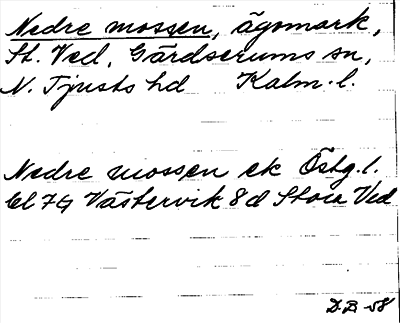 Nedre mossen, ägomark,
St. Ved, Gärdserums sn,
N. Tjusts hd Kalm. l.
Nedre mossen ek Östg. l.
bl 7G Västervik 8d Stora Ved
D.B -58